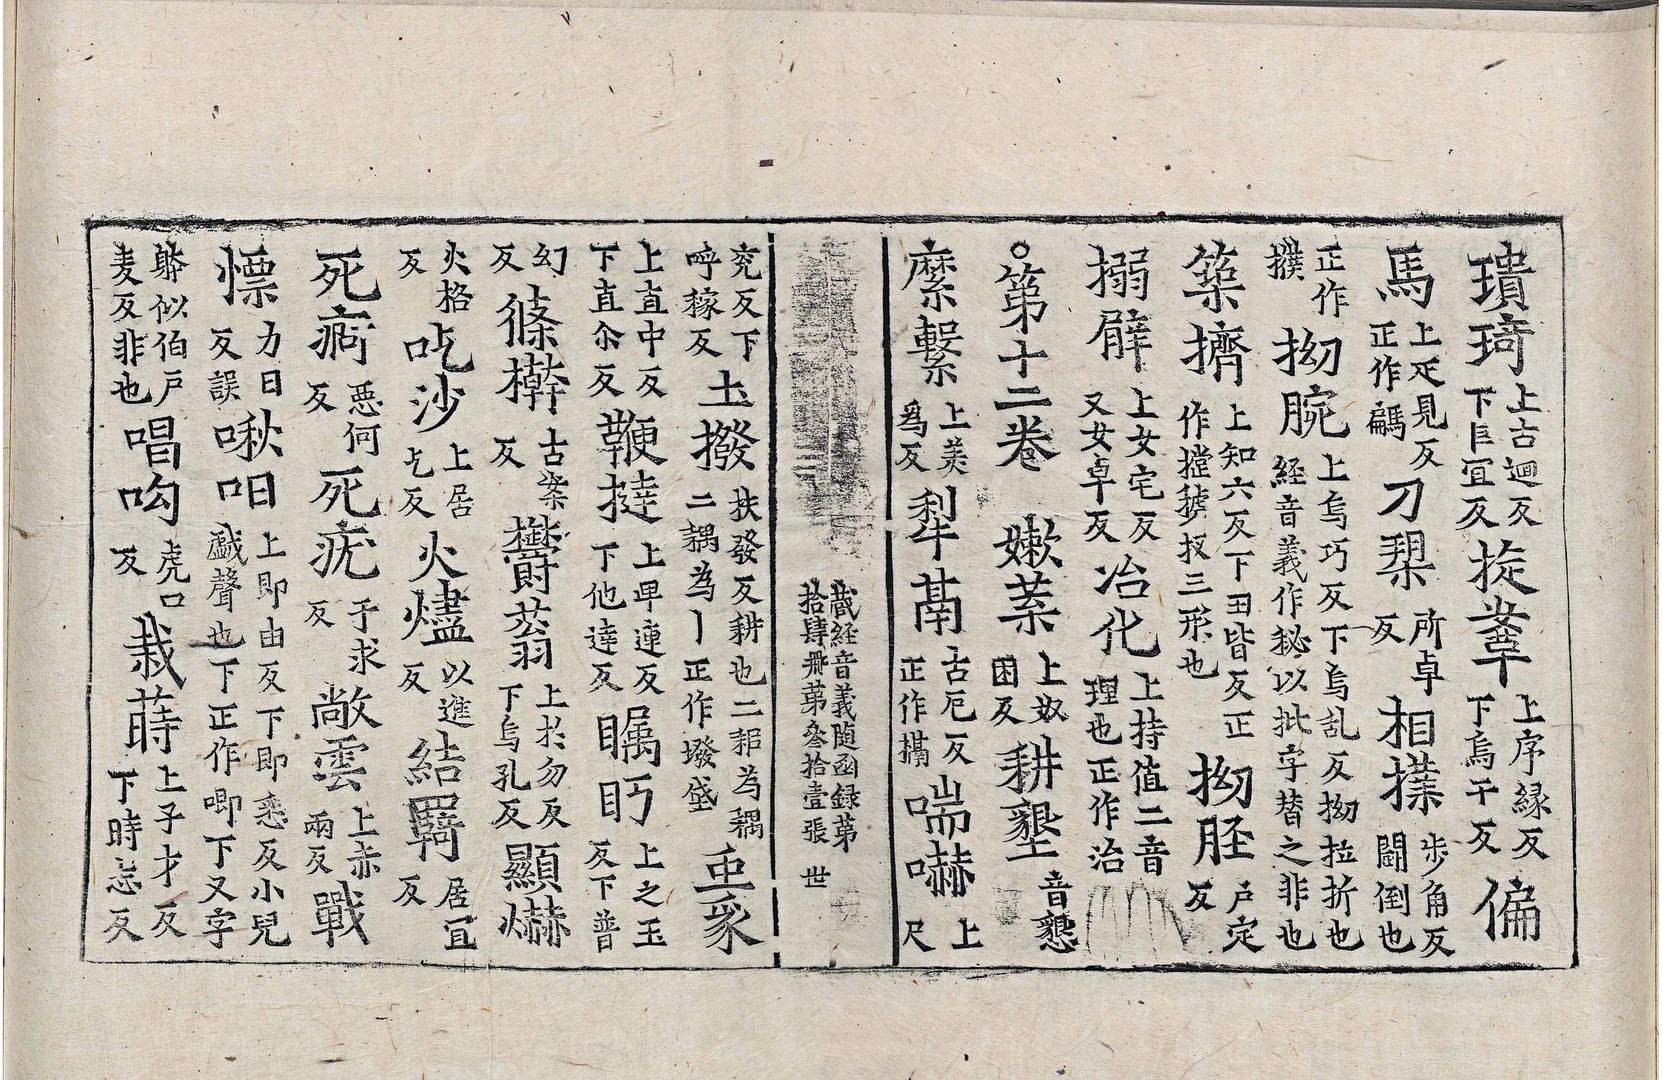 璝琦上古迴反下巨宜反㨀䩺上序緣反下烏干反偏
馬上疋見反正作騗刀槊所卓反相㩧步角反闘倒也
正作撲拗腕上烏巧反下烏乱反拗拉折也經音義作秘以批字替之非也
築擠上知六反下田皆反正作摚𢫬扠三形也拗胵户定反
搦䑀上女宅反又女卓反冶化上持值二音理也正作治
第十二卷嫩葇上奴困反耕墾音懇
縻繫上美爲反犁鬲上古厄反正作槅喘嚇上尺
藏經音義随函録第拾肆冊第叄拾壹張世
兖反下呼稼反土撥扶發反耕也二耜為耦二耦為丨正作墢垡𠅘豖
上直中反下直尒反鞭撻上卑連反下他達反矚眄上之玉反下普
幻反條榦古案反欝蓊上於勿反下烏孔反顯爀
火格反吃沙上居乞反火燼以進反結羇居宜反
死痾惡何反死疣于求反敞雲上赤兩反戰
慄力日反誤啾唨上即由反下即悉反小兒戱聲也下正作唧下又字
躰似伯戸麦反非也唱呴虎口反栽蒔上子才反下時志反